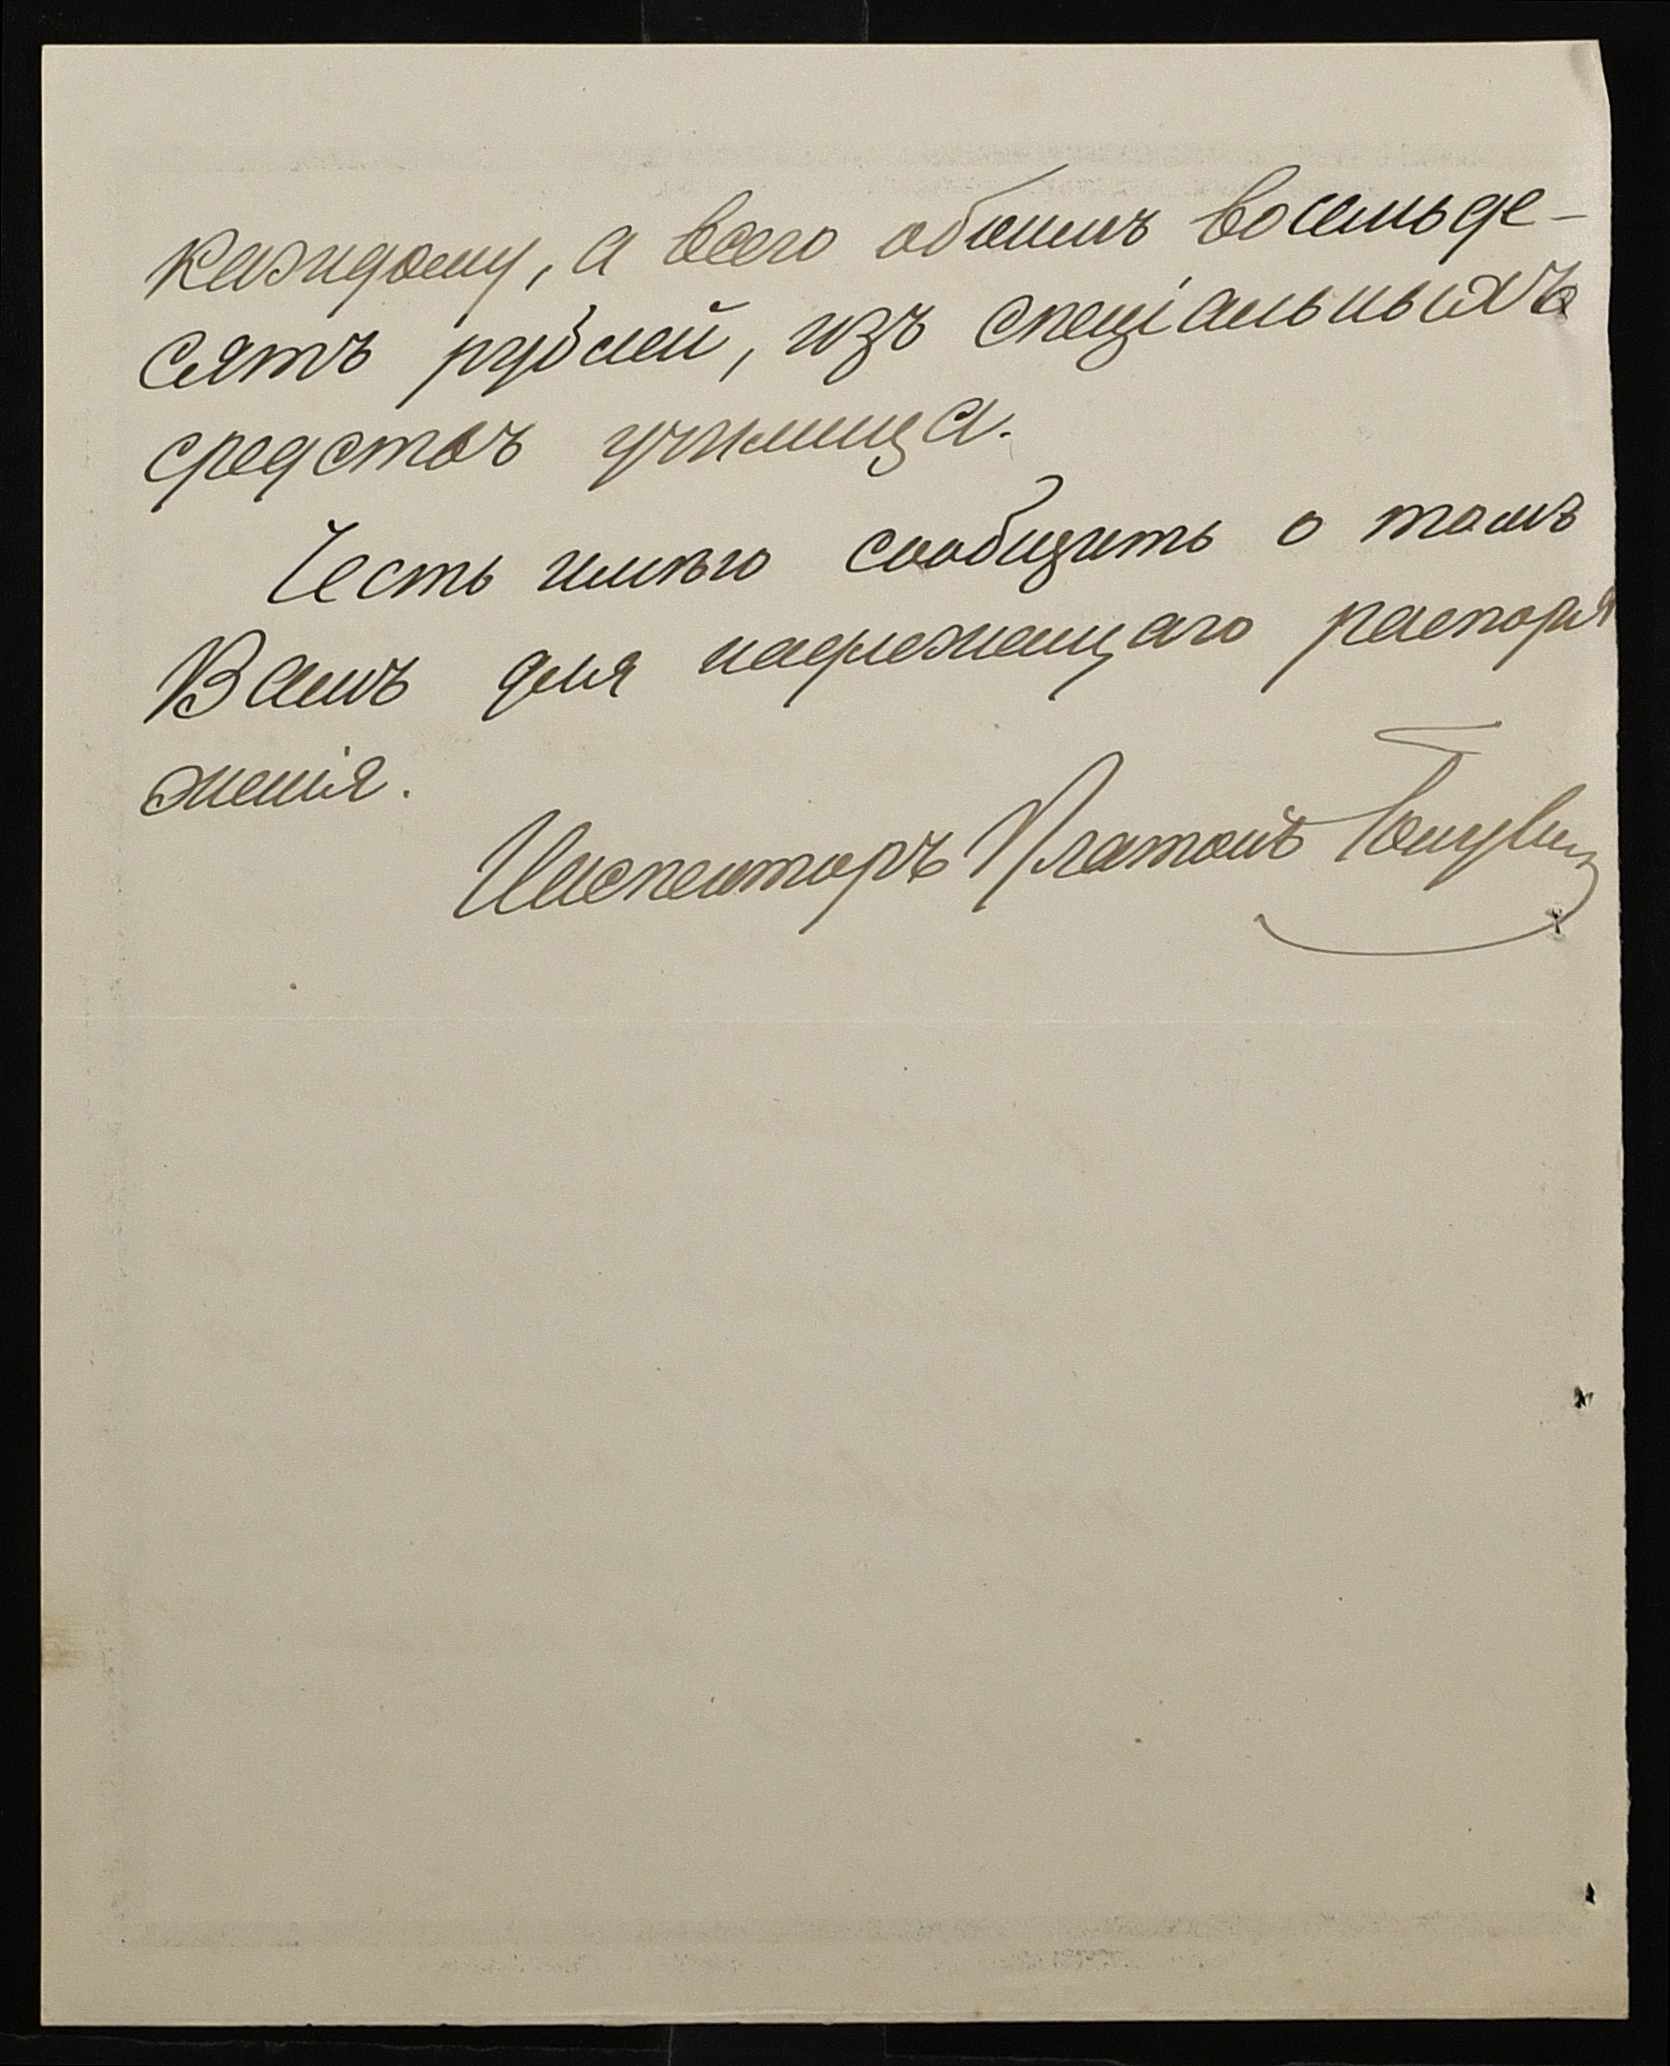 каждому, а всего обоимъ восемьде-
сятъ рублей, изъ спеціальныхъ
средствъ училища.
Честь имѣю сообщить о томъ
Вамъ для надлежащаго распоря
женія.
Инспекторъ Платонъ